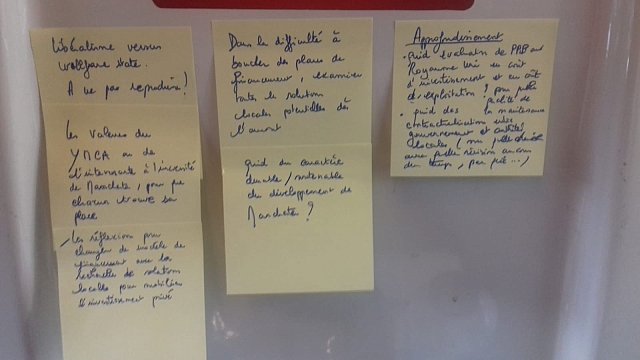 libéralisme versus
wellfare state.
A ne pas reproduire !
Les valeurs du
YMCA ou de
à l'université
de Manchester, pour que
chacun trouve sa
place
Les réflexions pour
changer de modèle de
financement avec la
recherche de solutions
locales pour mobiliser
l'investissement privé
Dans la difficulté à
boucler des plans de
financement, examiner
toutes les solutions
locales potentielles dès
l'amont
quid du caractère
durable / soutenable
du développement de
Manchester ?
Approfondissement
• quid évaluation de PPP au
Royaume Uni en coût
d'investissement et en coût
d'exploitation ?
la maintenance
• quid des
contractualisation entre
gouvernement et entités
locales
avec quelle révision au cours
du temps,